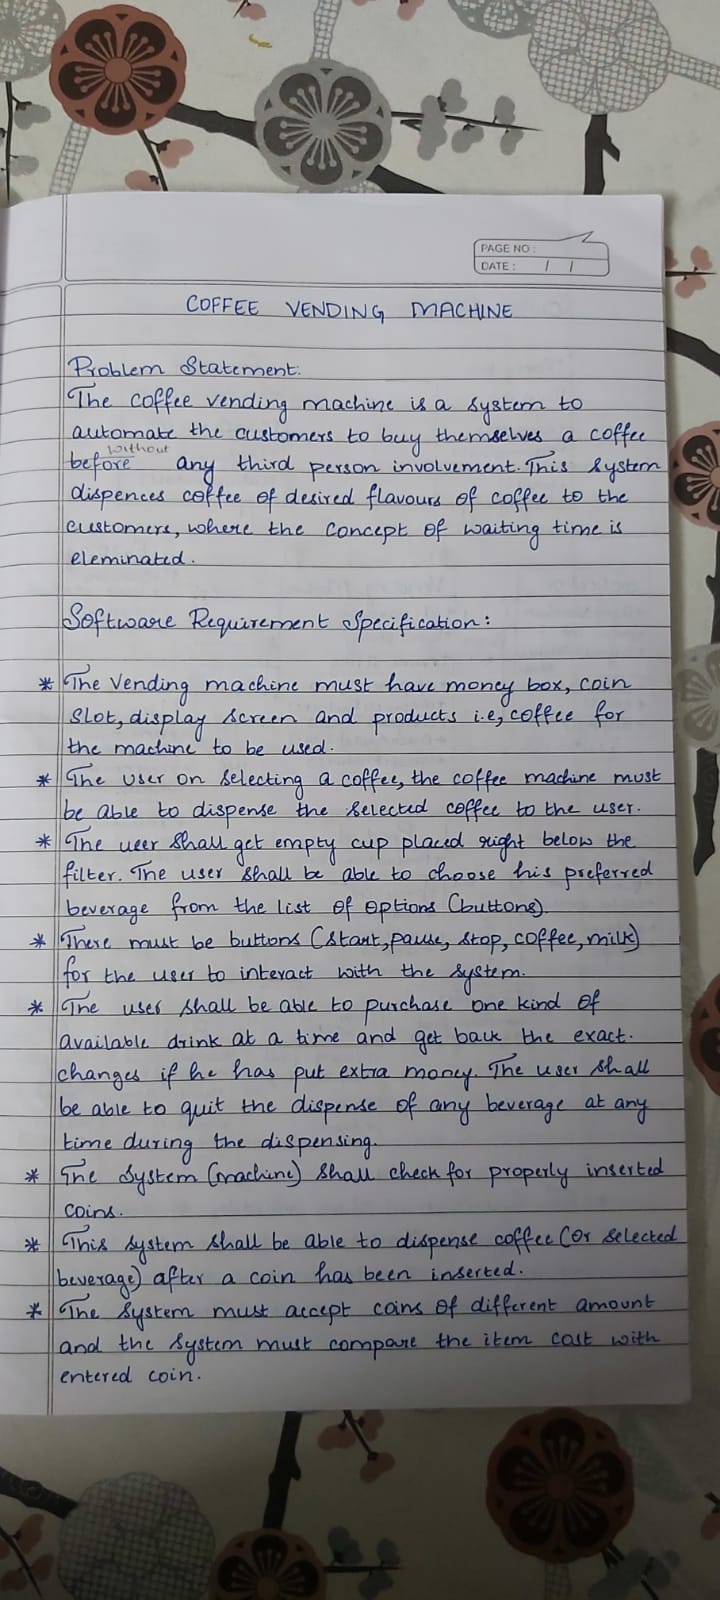 PAGE NO :
DATE : / /
COFFEE VENDING MACHINE
Problem Statement:
The coffee vending machine is a system to
automate the customers to buy themselves a coffee
without
before any third person involvement. This system
dispences coffee of desired flavours of coffee to the
customers, where the concept of waiting time is
eleminated.
Software Requirement Specification:
* The Vending machine must have money box, coin
slot, display screen and products i.e, coffee for
the machine to be used.
* The user on selecting a coffee, the coffee machine must
be able to dispense the selected coffee to the user.
* The user shall get empty cup placed right below the
filter. The user shall be able to choose his preferred
beverage from the list of options (buttons).
* There must be buttons (start, pause, stop, coffee, milk)
for the user to interact with the system.
* The user shall be able to purchase one kind of
available drink at a time and get back the exact.
changes if he has put extra money. The user shall
be able to quit the dispense of any beverage at any
time during the dispensing.
* The system (machine) shall check for properly inserted
coins.
* This system shall be able to dispense coffee (or selected
beverage) after a coin has been inserted.
* The system must accept coins of different amount
and the system must compare the item cost with
entered coin.